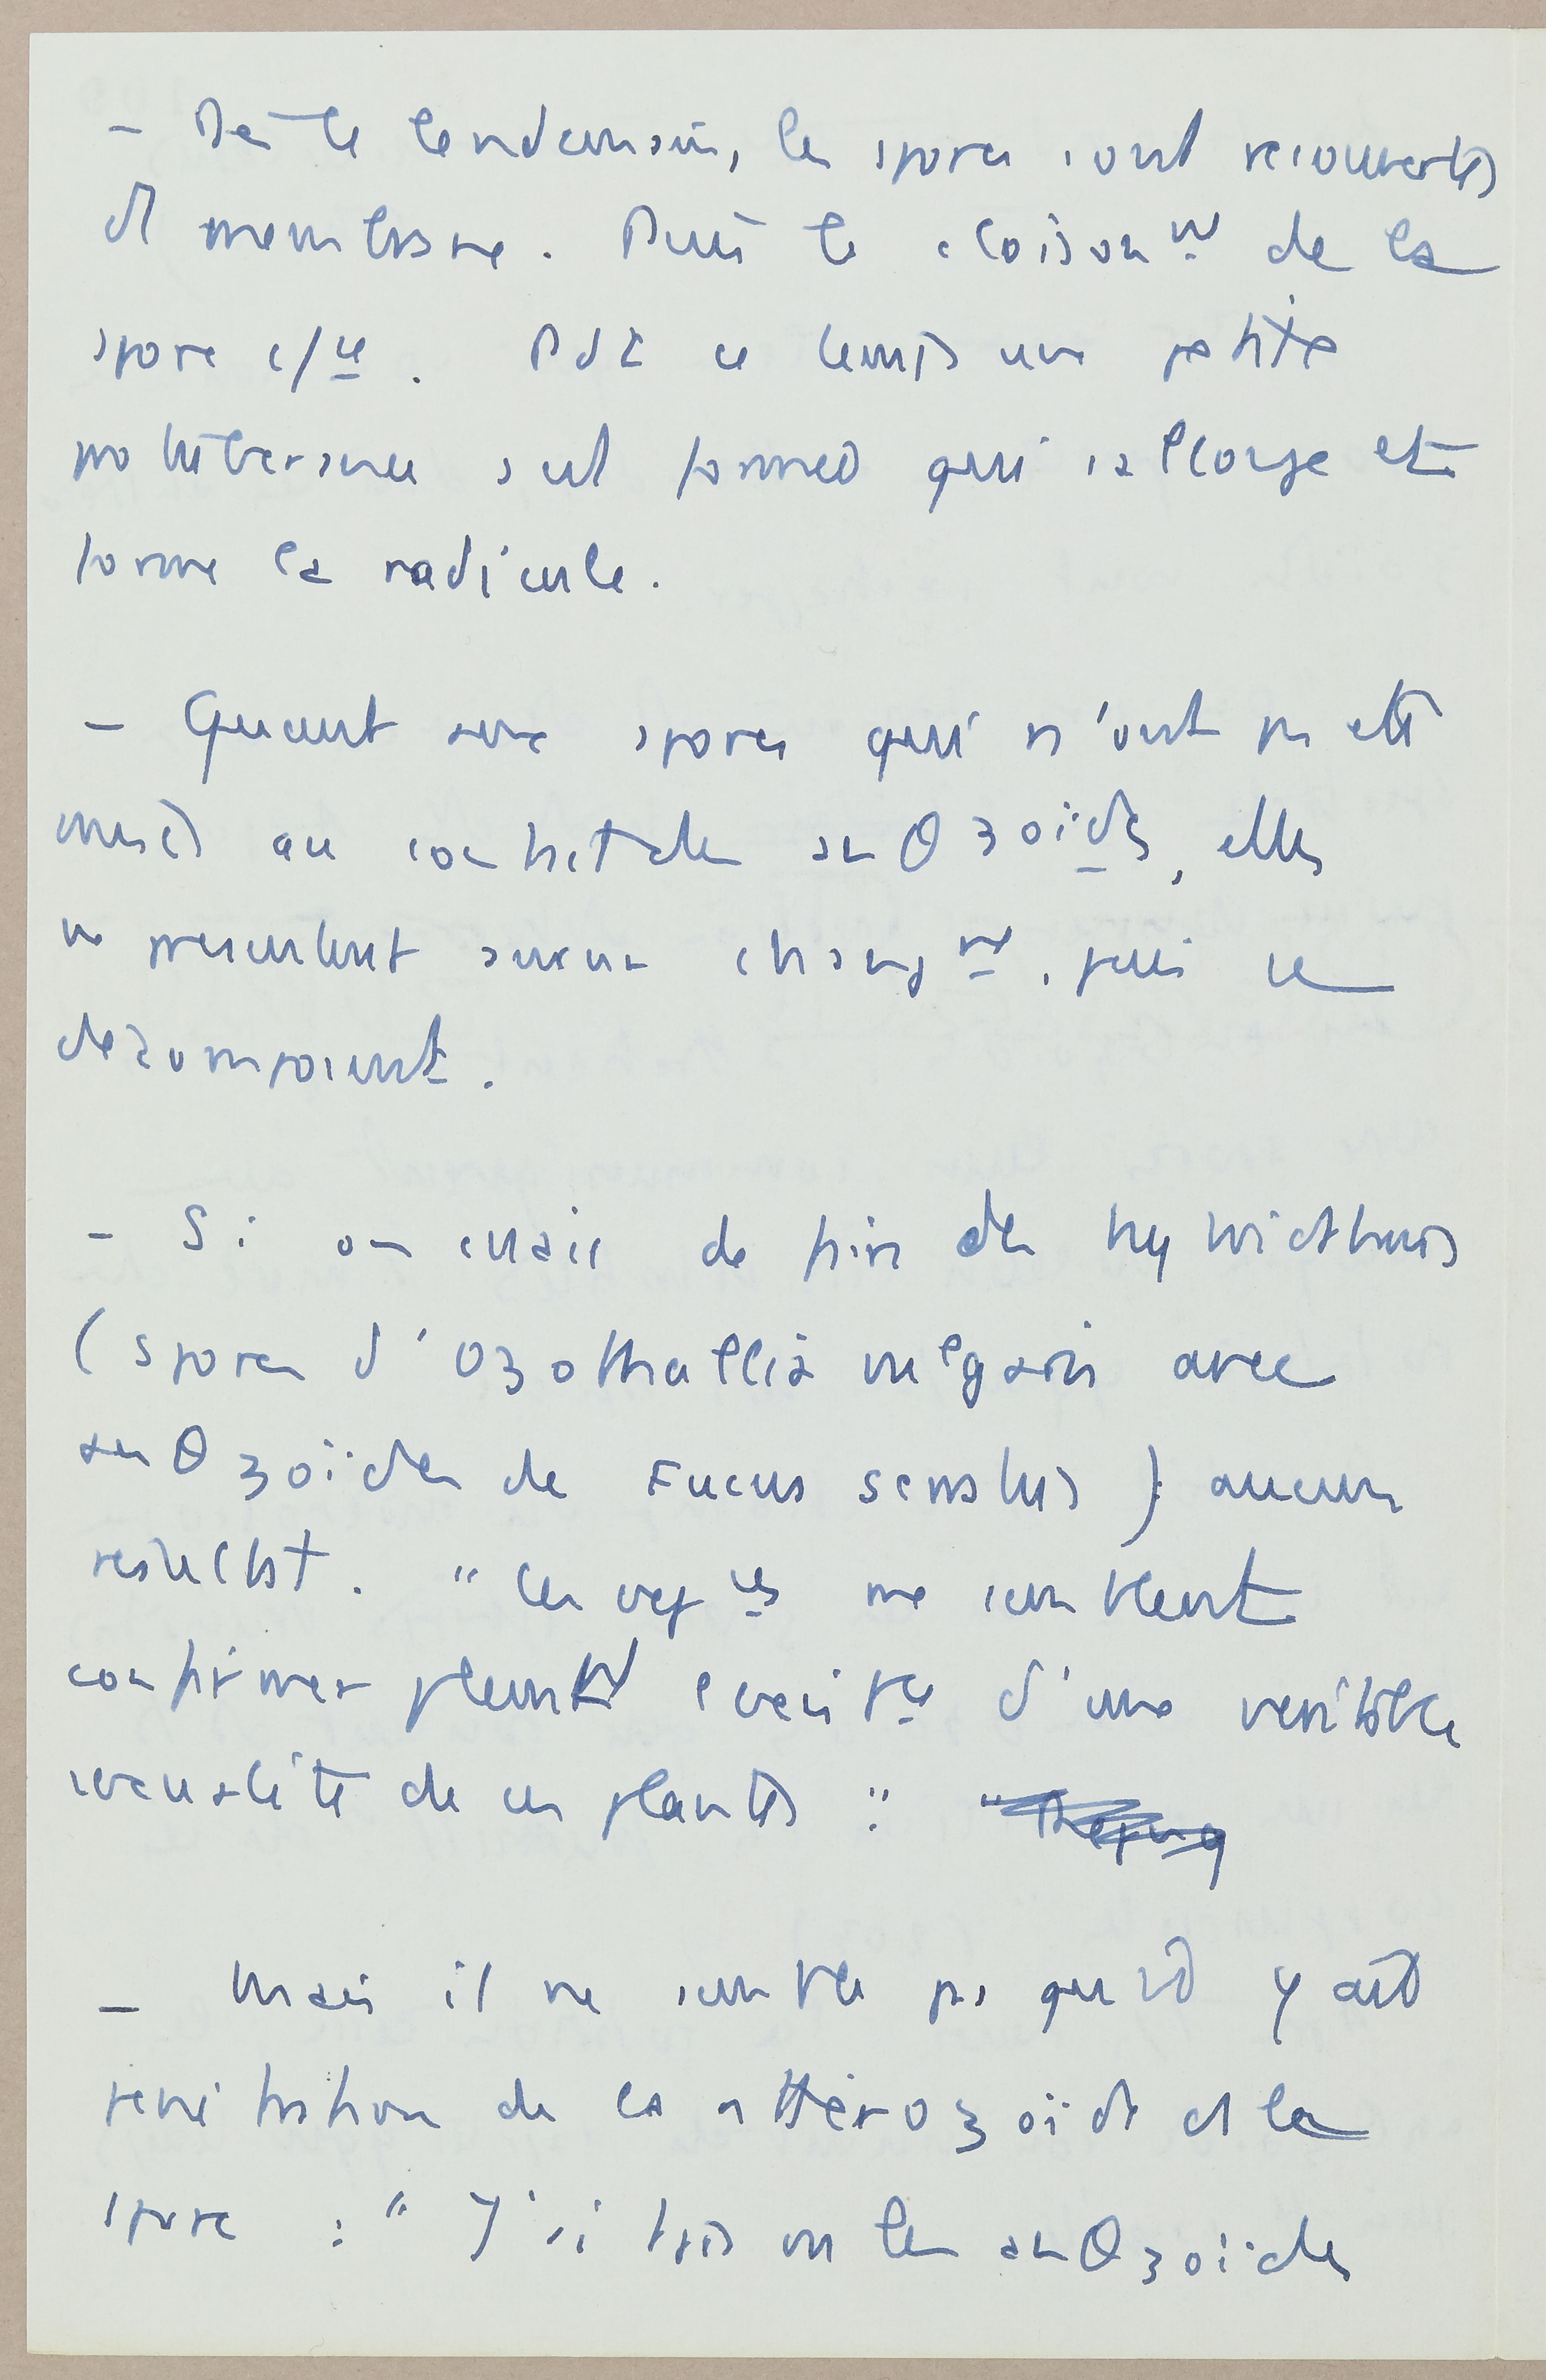 - Dès le lendemain, les spores sont recouvertes
d1 membrane. Puis le cloisonnt de la
spore c/ce. Pdt ce temps une petite
protubérance s'est formée qui s'allonge et
forme la radicule.
- Quant aux spores qui n'ont pas été
mises au contact des anθzoïdes, elles
ne présentent aucun changnt, puis se
décomposent.
- Si on essaie de faire des hybridations
(spores d'Ozothallia vulgaris avec
anθzoïdes de Fucus serratus) : aucun
résultat. "Ces exp ces me semblent
confirmer pleinnt l'existce d'une véritable
sexualité de ces plantes :"
- Mais il ne semble pas qu'il y ait
pénétration de l'anthérozoïde ds la
spore : "J'ai très vu les anθzoïdes